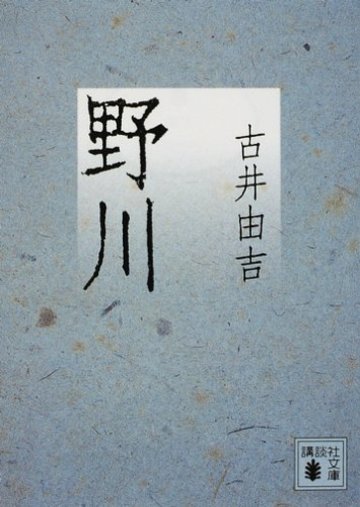 野川
古井由吉
講談社
文庫